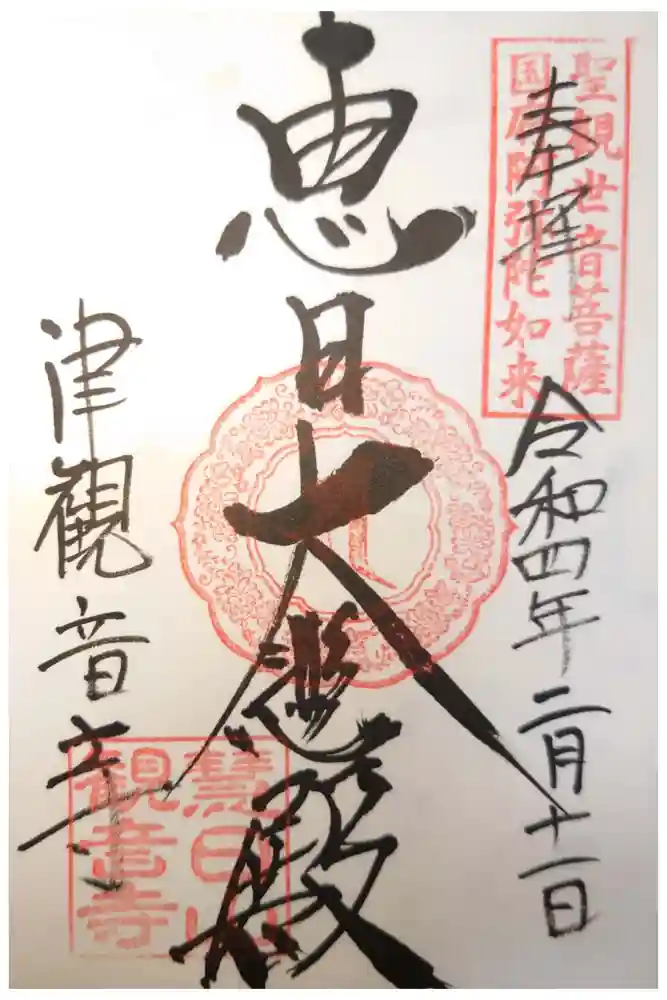 奉拝
令和四年二月十一日
聖観世音菩薩
国府阿弥陀如来
恵日大悲殿
津観音寺
慧日山
観音寺